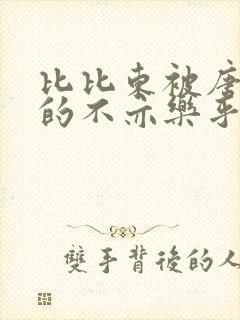 比比東被唐
的不亦樂乎
雙手背後的人